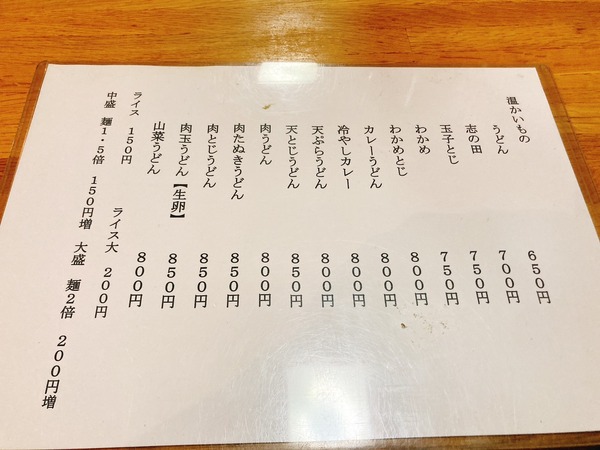 温かいもの
うどん 650円
志の田 700円
玉子とじ 750円
わかめ 750円
わかめとじ 800円
カレーうどん 800円
冷やしカレー 800円
天ぷらうどん 800円
天とじうどん 850円
肉うどん 800円
肉たぬきうどん 850円
肉とじうどん 850円
肉玉うどん【生卵】 850円
山菜うどん 800円
ライス 150円 ライス大 200円
中盛 麺1.5倍 150円増 大盛 麺2倍 200円増